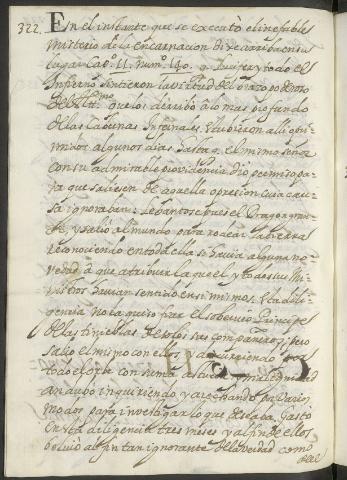 322. En el instante que se executò el inefable
misterio de la encarnacion dixe arriba en su
lugar Cap.º 11. num.º 140. q̃ Luzifer y todo el
Infierno sintieron la virtud del brazo poderoso
del Alt.mo que los derribò a lo mas profundo
de las Cabernas Infernales. Estubieron alli opri-
midos algunos dias hasta q. el mismo señor
con su admirable providencia dio permiso pa-
ra que saliesen de aquella opresion cuia cau-
sa ignoraban. Lebantose pues el Dragon gran-
de, y salio al mundo para rodear la tierra
reconociendo en toda ella si havia alguna no-
vedad à que atribuir la que el y todos sus Mi-
nistros havian sentido en si mismos. Esta dili-
gencia no la quiso fiar el sobervio Principe
de las tinieblas de solos sus compañeros, pero
salio el mismo con ellos, y discurriendo por
todo el orbe con suma astucia y malignidad
anduvo inquiriendo y azechando por varios
modos para investigar lo que deseaba. Gastò
en esta diligencia tres meses y al fin de ellos
bolvio al fin tan ignorante de la verdad como